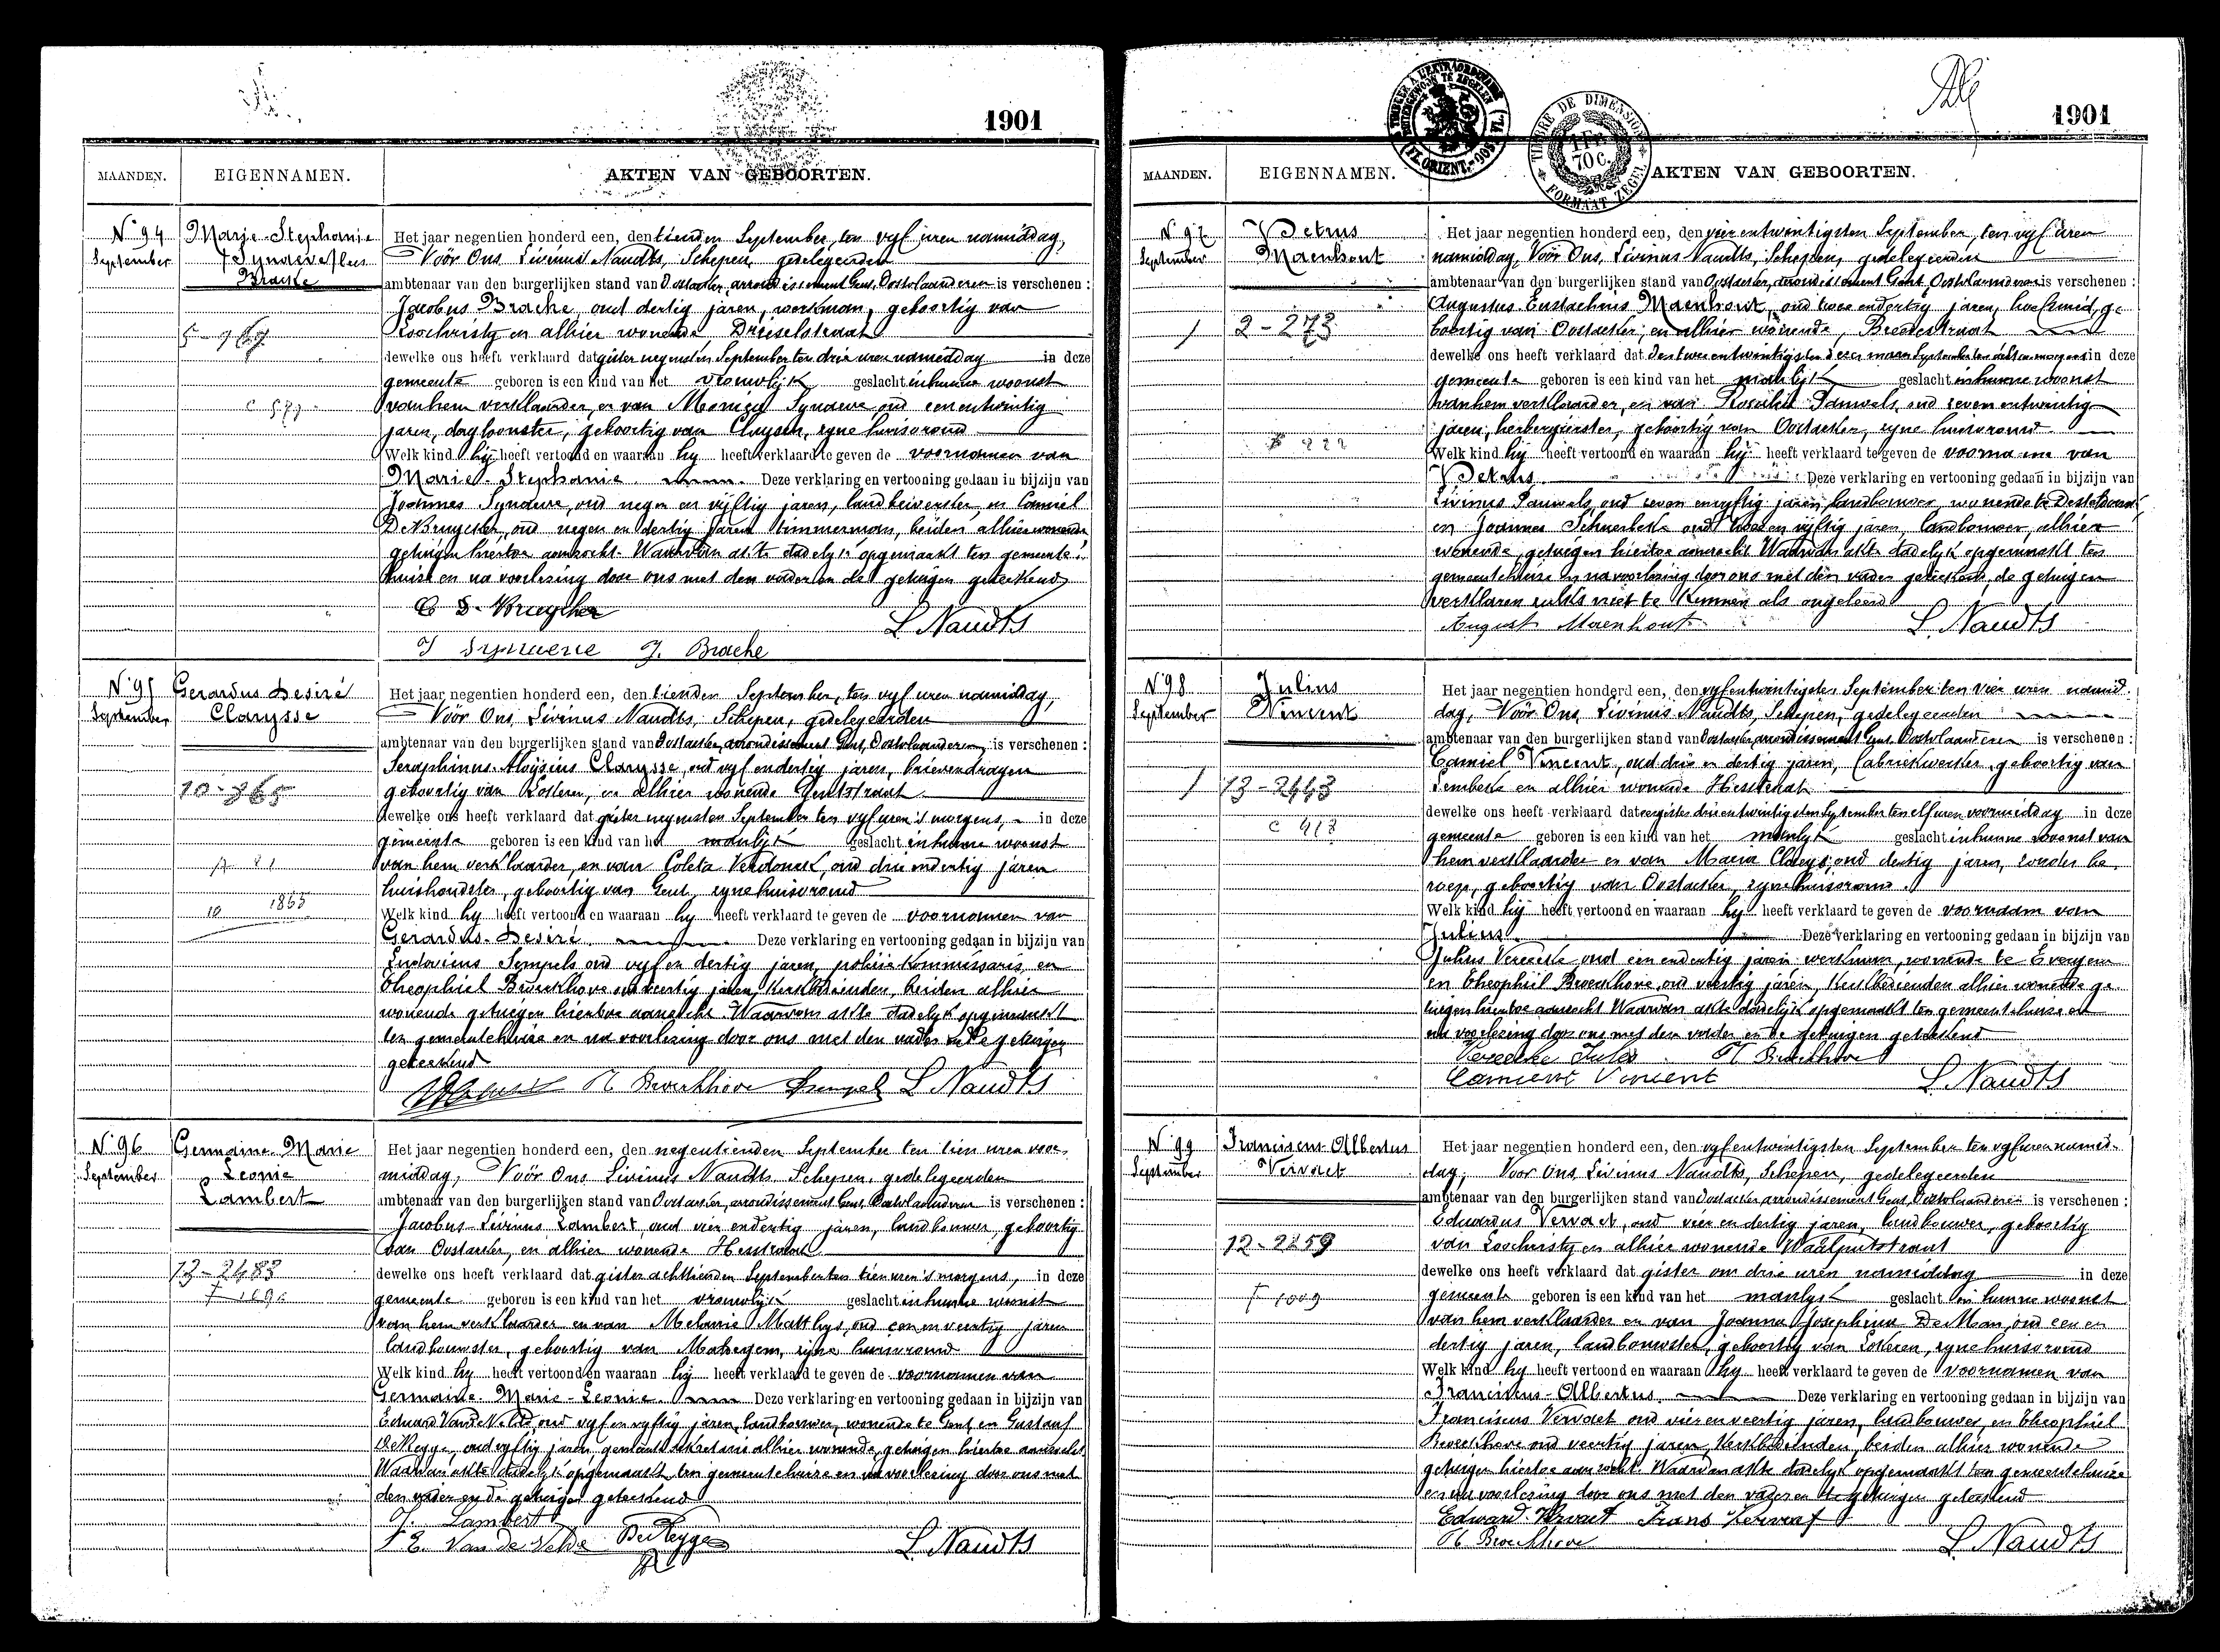 1901
MAANDEN. EIGENNAMEN. AKTEN VAN GEBOORTEN.
N° 94 September
Marie-Stephanie
Bracke
5-969
Het jaar negentien honderd een, den tienden September, ten vyf uren namiddag,
Vóór Ons Livinus Naudts, Schepen, gedelegeerden
ambtenaar van den burgerlijken stand van Oostacker, arrondissement Gent, Oostvlaanderen is verschenen :
Jacobus Bracke, oud dertig jaren, werkman, geboortig van
Loochristy en alhier wonende Drieselstraat
dewelke ons heeft verklaard dat gister negensten September ten drie uren namiddag in deze
gemeente geboren is een kind van het vrouwlijk geslacht in hunne woonst
van hem verklaarder, en van Monica Synaeve oud een entwintig
jaren, dagloonster, geboortig van Cluysen, zyne huisvrouw
Welk kind hij heeft vertoond en waaraan hy heeft verklaard te geven de voornamen van
Marie-Stephanie. Deze verklaring en vertooning gedaan in bijzijn van
Joannes Synaeve, oud negen en vijftig jaren, landbewerker, en Camiel
De Bruycker, oud negen en dertig jaren timmerman, beiden alhier wonende,
getuigen hiertoe aanzocht. Waarvan akte dadelyk opgemaakt ten gemeente-
huize en na voorlezing door ons met den vader en de getuigen geteekend
C D-Bruycker L. Naudts
J Synaeve J. Bracke
N° 95 September
Gerardus Desiré
Clarysse
10-365
10 1865
Het jaar negentien honderd een, den tienden September, ten vyf uren namiddag,
Vóór Ons Livinus Naudts, Schepen, gedelegeerden
ambtenaar van den burgerlijken stand van Oostacker, arrondissement Gent, Oostvlaanderen, is verschenen :
Seraphinus-Aloysius Clarysse, oud vyf endertig jaren, brievendrager
geboortig van Lokeren, en alhier wonende Gentstraat
dewelke ons heeft verklaard dat gister negensten September ten vyf uren 's morgens, in deze
gemeente geboren is een kind van het manlijk geslacht in hunne woonst
van hem verklaarder, en van Coleta Verdonck, oud drie endertig jaren
huishoudster, geboortig van Gent, zyne huisvrouw
Welk kind hy heeft vertoond en waaraan hy heeft verklaard te geven de voornamen van
Gerardus-Desiré. Deze verklaring en vertooning gedaan in bijzijn van
Ludovicus Sempels oud vyf en dertig jaren, politie kommissaris, en
Theophiel Broeckhove oud veertig jaren, kerkbedienden, beiden alhier
wonende getuigen hiertoe aanzocht. Waarvan akte dadelyk opgemaakt
ten gemeentehuize en na voorlezing door ons met den vader en de getuigen
geteekend
Th Broeckhove Sempels L. Naudts
N° 96 September
Germaine-Marie
Leonie
Lambert
13-2483
Het jaar negentien honderd een, den negentienden September ten tien uren voor-
middag, Vóór Ons Livinus Naudts, Schepen, gedelegeerden
ambtenaar van den burgerlijken stand van Oostacker, arrondissement Gent, Oostvlaanderen is verschenen :
Jacobus-Livinus Lambert, oud vier endertig jaren, landbouwer, geboortig
van Oostacker, en alhier wonende Hesstraat
dewelke ons heeft verklaard dat gister achttienden September ten tien uren 's morgens, in deze
gemeente geboren is een kind van het vrouwlijk geslacht in hunne woonst
van hem verklaarder en van Melanie Matthys, oud een en veertig jaren
landbouwster, geboortig van Materen, zijne huisvrouw
Welk kind hy heeft vertoond en waaraan hij heeft verklaard te geven de voornamen van
Germaine-Marie-Leonie. Deze verklaring en vertooning gedaan in bijzijn van
Eduard Van de Velde, oud vyf en vyftig jaren, landbouwer, wonende te Gent, en Gustaaf
De Regge, oud vyftig jaren gemeentesekretaris alhier wonende, getuigen hiertoe aanzocht
Waarvan akte dadelyk opgemaakt ten gemeentehuize en na voorlezing door ons met
den vader en de getuigen geteekend
J. Lambert
E. Van de Velde DeRegge L. Naudts
1901
MAANDEN. EIGENNAMEN. AKTEN VAN GEBOORTEN.
TIMBRE DE DIMENSION
1 FR. 70 C.
FORMAAT ZEGEL
N° 97 September
Petrus
Maenhout
2-273
Het jaar negentien honderd een, den vier entwintigsten September, ten vyf uren
namiddag, Vóór Ons, Livinus Naudts, Schepen, gedelegeerden
ambtenaar van den burgerlijken stand van Oostacker, arrondissement Gent, Oostvlaanderen is verschenen :
Augustus-Eustachius Maenhout, oud twee endertig jaren, hoefsmid, ge-
boortig van Oostacker, en alhier wonende, Breedestraat
dewelke ons heeft verklaard dat den twee entwintigsten dezer maand September ten acht uren morgens in deze
gemeente geboren is een kind van het manlijk geslacht in hunne woonst
van hem verklaarder, en van Rosalie Pauwels, oud zeven entwintig
jaren, herbergierster, geboortig van Oostacker, zyne huisvrouw
Welk kind hij heeft vertoond en waaraan hij heeft verklaard te geven de voornamen van
Petrus. Deze verklaring en vertooning gedaan in bijzijn van
Livinus Pauwels, oud zeven en vyftig jaren, landbouwer wonende te Desteldonck
en Joannes Schaerlaeken oud twee en vyftig jaren, landbouwer, alhier
wonende, getuigen hiertoe aanzocht. Waarvan akte dadelyk opgemaakt ten
gemeentehuize en na voorlezing door ons met den vader geteekend, de getuigen
verklaren zulks niet te kunnen als ongeleerd
August Maenhout L. Naudts
N° 98 September
Julius
Vincent
13-2443
c 418
Het jaar negentien honderd een, den vyf entwintigsten September ten vier uren namid-
dag, Vóór Ons Livinus Naudts, Schepen, gedelegeerden
ambtenaar van den burgerlijken stand van Oostacker, arrondissement Gent, Oostvlaanderen is verschenen :
Camiel Vincent, oud drie en dertig jaren, fabriekwerker, geboortig van
Lembeke en alhier wonende Hesstraat
dewelke ons heeft verklaard dat eergister drie entwintigsten September ten elf uren voormiddag in deze
gemeente geboren is een kind van het manlyk geslacht in hunne woonst van
hem verklaarder en van Maria Claeys, oud dertig jaren, zonder be-
roep, geboortig van Oostacker, zyne huisvrouw
Welk kind hij heeft vertoond en waaraan hy heeft verklaard te geven de voornaam van
Julius. Deze verklaring en vertooning gedaan in bijzijn van
Julius Vereecke oud een endertig jaren werkman, wonende te Evergem
en Theophiel Broeckhove, oud veertig jaren, kerkbedienden alhier wonende ge-
tuigen hiertoe aanzocht Waarvan akte dadelijk opgemaakt ten gemeentehuize en
na voorlezing door ons met den vader en de getuigen geteekend
Vereecke Jules Th Broeckhove
Camiel Vincent L. Naudts
N° 99 September
Franciscus-Albertus
Vervaet
12-2259
F 1009
Het jaar negentien honderd een, den vyf entwintigsten September ten vyf uren namid-
dag, Voor Ons, Livinus Naudts, Schepen, gedelegeerden
ambtenaar van den burgerlijken stand van Oostacker, arrondissement Gent, Oostvlaanderen is verschenen :
Eduardus Vervaet, oud vier en dertig jaren, landbouwer, geboortig
van Loochristy en alhier wonende Waalputstraat
dewelke ons heeft verklaard dat gister om drie uren namiddag in deze
gemeente geboren is een kind van het manlyk geslacht in hunne woonst
van hem verklaarder en van Joanna Josephina De Man, oud een en
dertig jaren, landbouwster, geboortig van Lokeren, zyne huisvrouw
Welk kind hy heeft vertoond en waaraan hy heeft verklaard te geven de voornamen van
Franciscus-Albertus. Deze verklaring en vertooning gedaan in bijzijn van
Franciscus Vervaet oud vier en veertig jaren, landbouwer, en Theophiel
Broeckhove oud veertig jaren, kerkbedienden, beiden alhier wonende
getuigen hiertoe aanzocht. Waarvan akte dadelyk opgemaakt ten gemeentehuize
en na voorlezing door ons met den vader en de getuigen geteekend
Edward Vervaet Frans Vervaet
Th Broeckhove L. Naudts